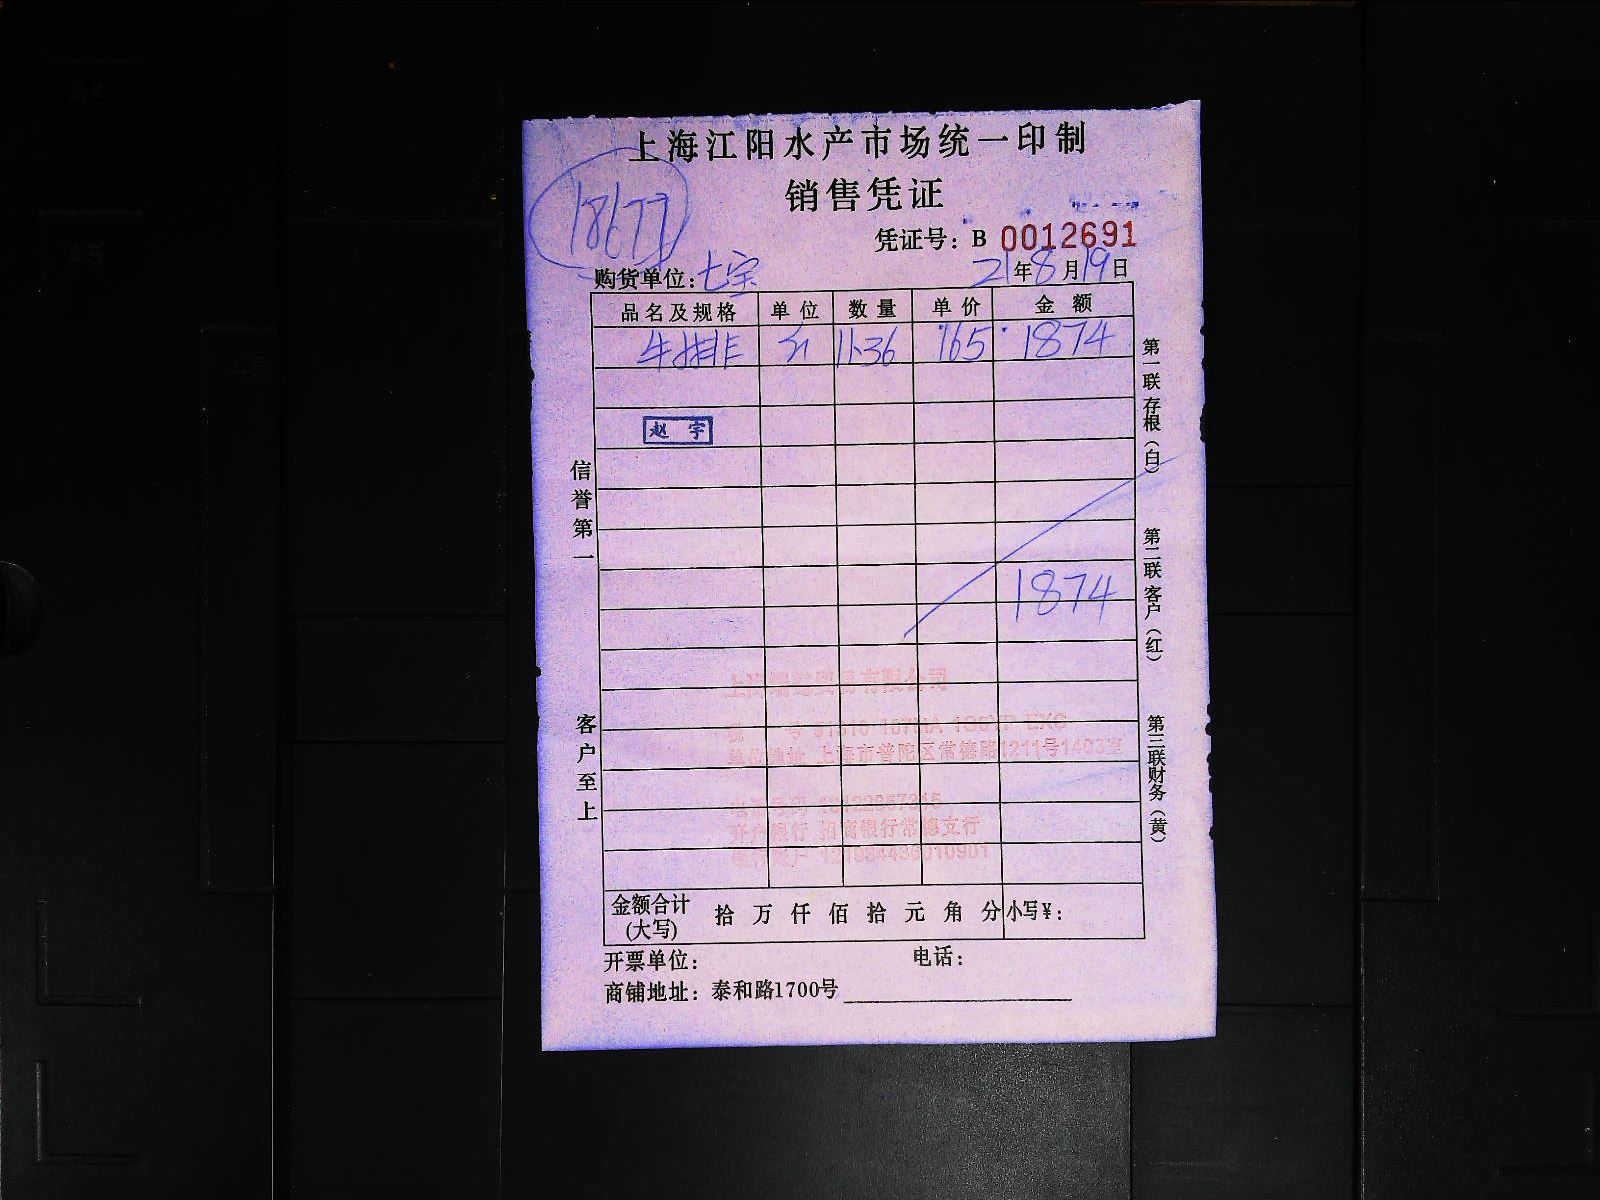 上海江阳水产市场统一印制
销售凭证
18677
凭证号：B 0012691
购货单位：七宗 21年8月19日
品名及规格 单位 数量 单价 金额
牛排 11.36 165 1874
赵宇
1874
信誉第一
客户至上
第一联存根（白）
第二联客户（红）
第三联财务（黄）
上海市普陀区常德路1211号1403室
开户银行 招商银行常德支行
金额合计（大写） 拾万仟佰拾元角分 小写￥：
开票单位： 电话：
商铺地址：泰和路1700号